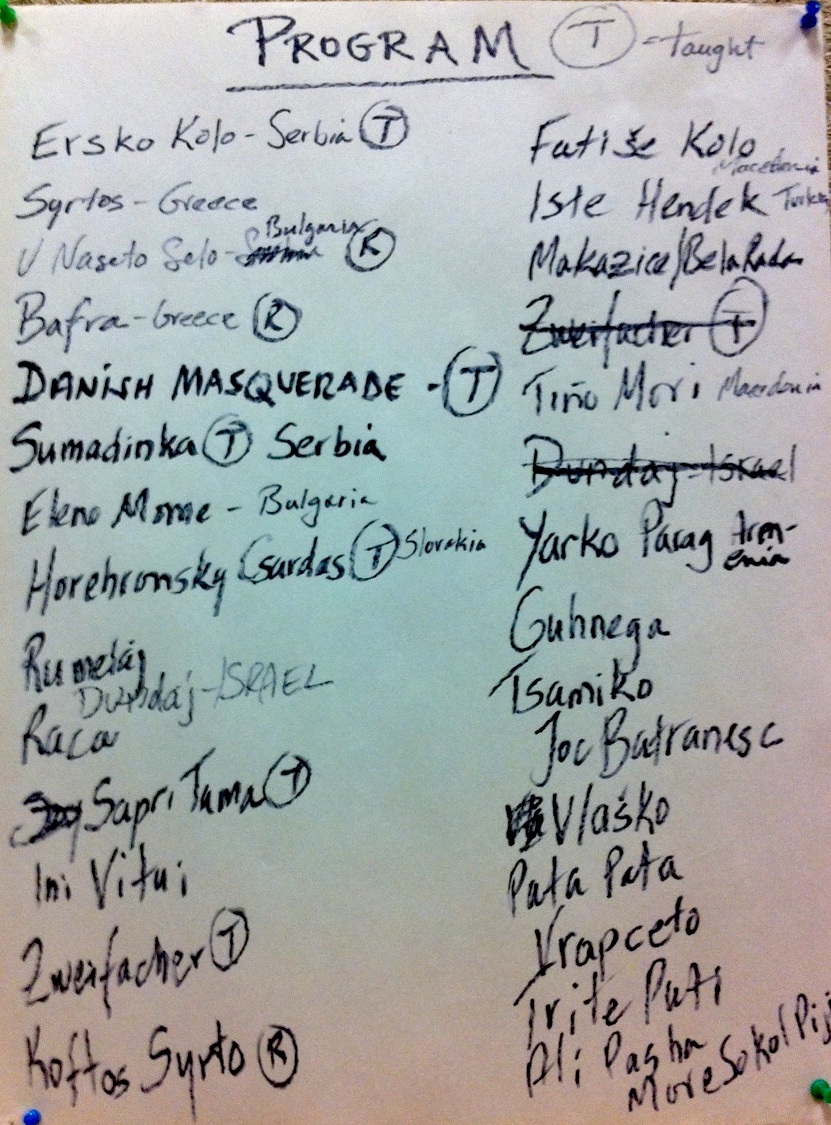 PROGRAM T = taught
Ersko Kolo - Serbia T
Syrtos - Greece
Bulgaria
U Naseto Selo - R
Bafra - Greece R
DANISH MASQUERADE - T
Sumadinka T Serbia
Eleno Mome - Bulgaria
Horehronsky Csardas T Slovakia
Rumelaj
Dundaj - ISRAEL
Raca
Sapri Tama T
Ini Vitui
Zweifacher T
Koftos Syrto R
Fatiše Kolo
Macedonia
Iste Hendek Turkey
Makazice/Bela Rada
Zweifacher T
Tino Mori Macedonia
Dundaj - Israel
Yarko Parag Arm-
enia
Guhnega
Tsamiko
Joc Batranesc
Vlaško
Pata Pata
Vrapceto
Trite Puti
Ali Pasha
More Sokol Pij